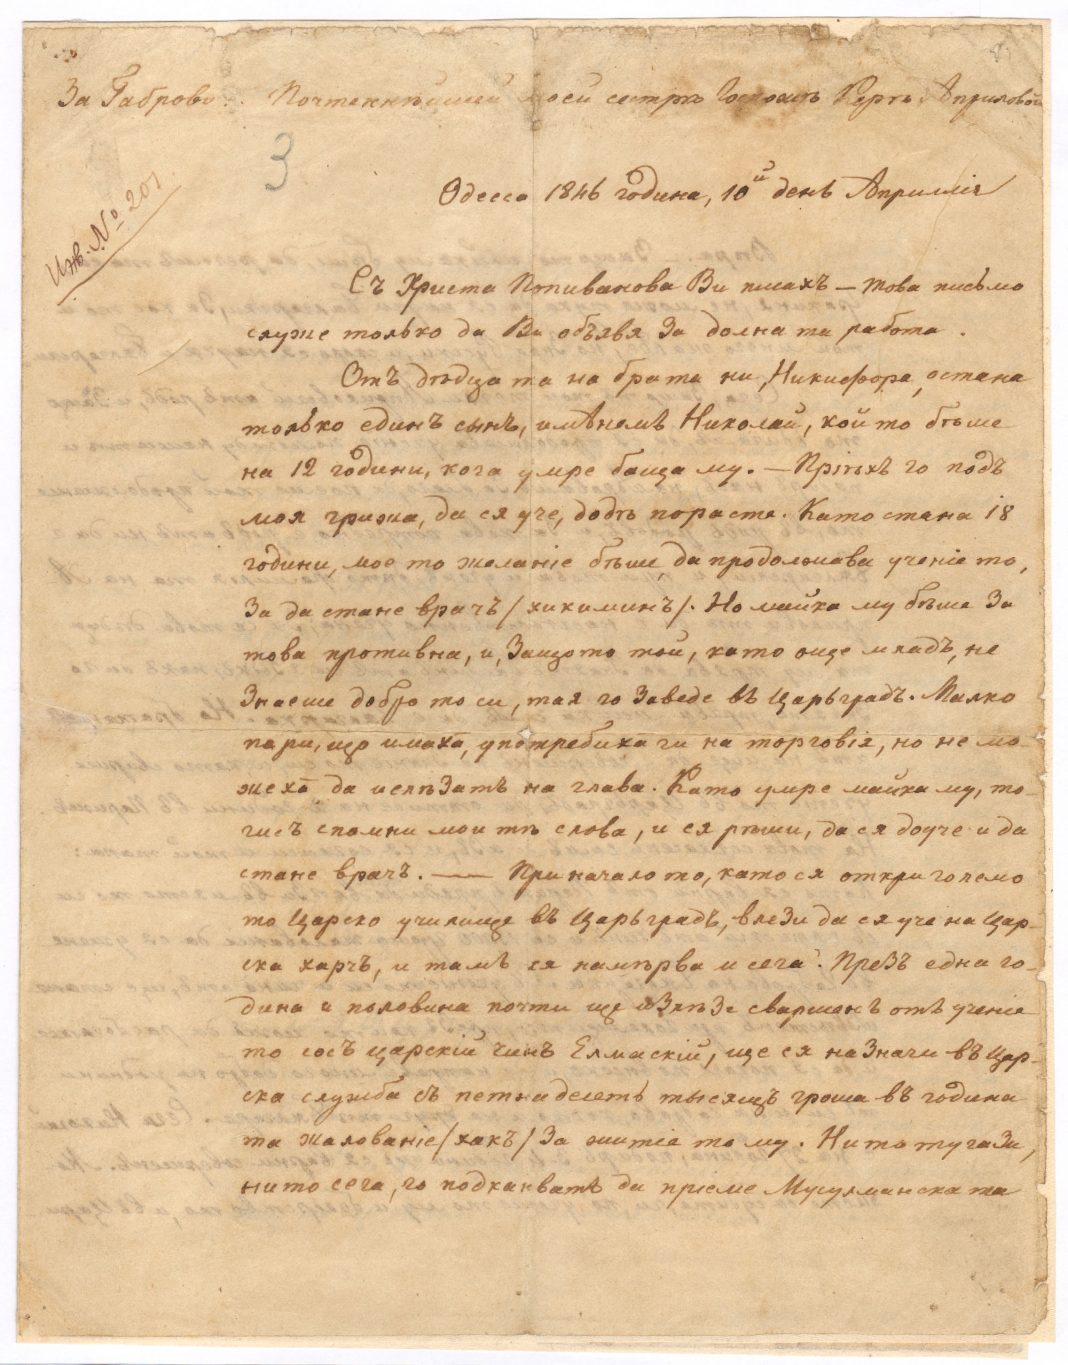 За Габрово. Почтеннѣйшей моей сестрѣ Госпожѣ Керѣ Априловой
3
Одесса 1846 година, 10й день Априллія
Инв. № 201
Съ Христа Попиванова Ви писахъ — това письмо
служе только да Ви объявя за долна та работа.
Отъ дѣтца та на брата ни, Никифора, остана
только единъ сынъ, имѣнемъ Николай, кой то бѣше
на 12 години, кога умре баща му. — Пріѣхъ го подъ
моя грижа, да ся уче, додѣ порасте. Като стана 18
години, мое то желаніе бѣше, да продолжава ученіе то,
за да стане врачъ /хикиминъ/. Но майка му бѣше за
това противна, и, защото той, като още младъ, не
знаеше добро то си, тая го заведе въ Царьградъ. Малко
пари, що имаха, употребиха ги на торговія, но не мо-
жеха да излѣзатъ на глава. Като умре майка му, то-
гисъ спомни мои тѣ слова, и ся рѣши, да ся доуче и да
стане врачъ. — При начало то, като ся откри големо
то Царско училище въ Царьградъ, влези да ся уче на Цар-
ска харчъ, и тамъ ся намѣрва и сега. Презъ една го-
дина и половина почти ще излѣзе свършенъ отъ ученіе
то сосъ царскій чинъ Елмаскій, ще ся назначи въ Цар-
ска служба съ петнадесеть тысящъ гроша въ година
та жалованіе /хакъ/ за житіе то му. Нито тугази,
нито сега, го подканватъ да пріеме Мусулманска та